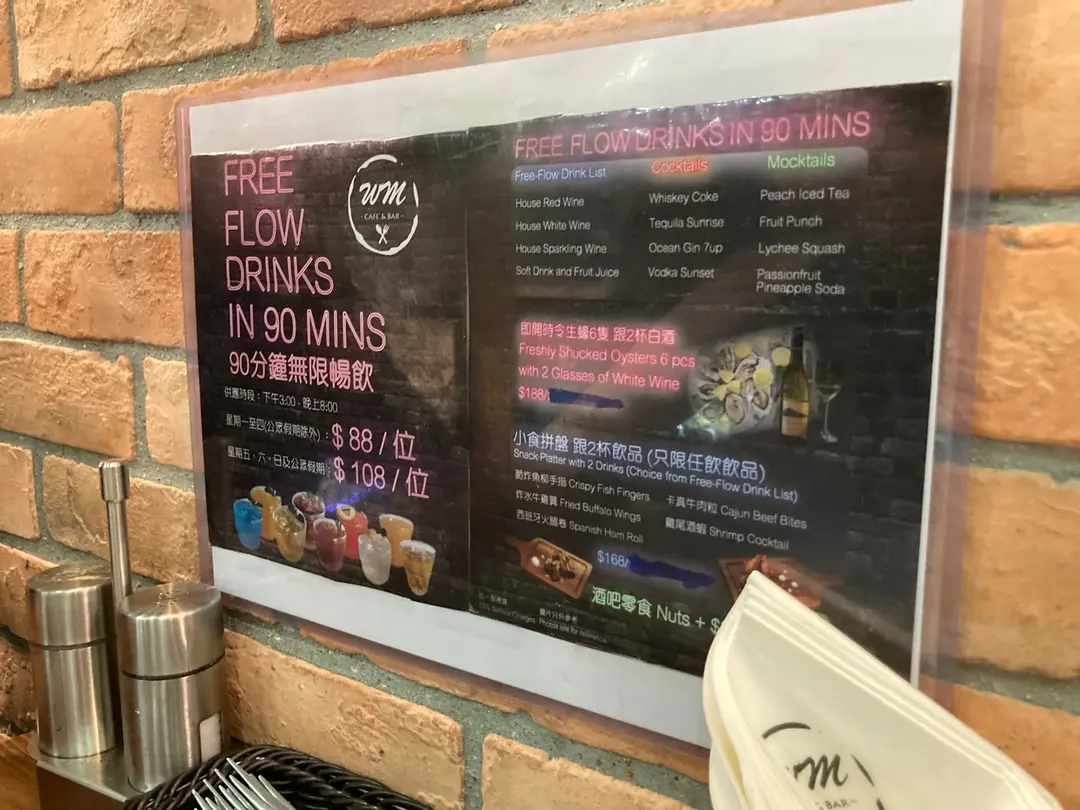 FREE
FLOW
DRINKS
IN 90 MINS
90分鐘無限暢飲
供應時段：下午3:00 - 晚上8:00
星期一至四(公眾假期除外)：$ 88 / 位
星期五、六、日及公眾假期：$ 108 / 位
wm
- CAFE & BAR -
FREE FLOW DRINKS IN 90 MINS
Free-Flow Drink List
House Red Wine
House White Wine
House Sparkling Wine
Soft Drink and Fruit Juice
Cocktails
Whiskey Coke
Tequila Sunrise
Ocean Gin 7up
Vodka Sunset
Mocktails
Peach Iced Tea
Fruit Punch
Lychee Squash
Passionfruit
Pineapple Soda
即開時令生蠔6隻 跟2杯白酒
Freshly Shucked Oysters 6 pcs
with 2 Glasses of White Wine
$188/
小食拼盤 跟2杯飲品 (只限任飲飲品)
Snack Platter with 2 Drinks (Choice from Free-Flow Drink List)
脆炸魚柳手指 Crispy Fish Fingers
炸水牛雞翼 Fried Buffalo Wings
西班牙火腿卷 Spanish Ham Roll
卡真牛肉粒 Cajun Beef Bites
雞尾酒蝦 Shrimp Cocktail
$168/
酒吧零食 Nuts + $
10% Service Charges
圖片只供參考
Photos are for reference
wm
& BAR -